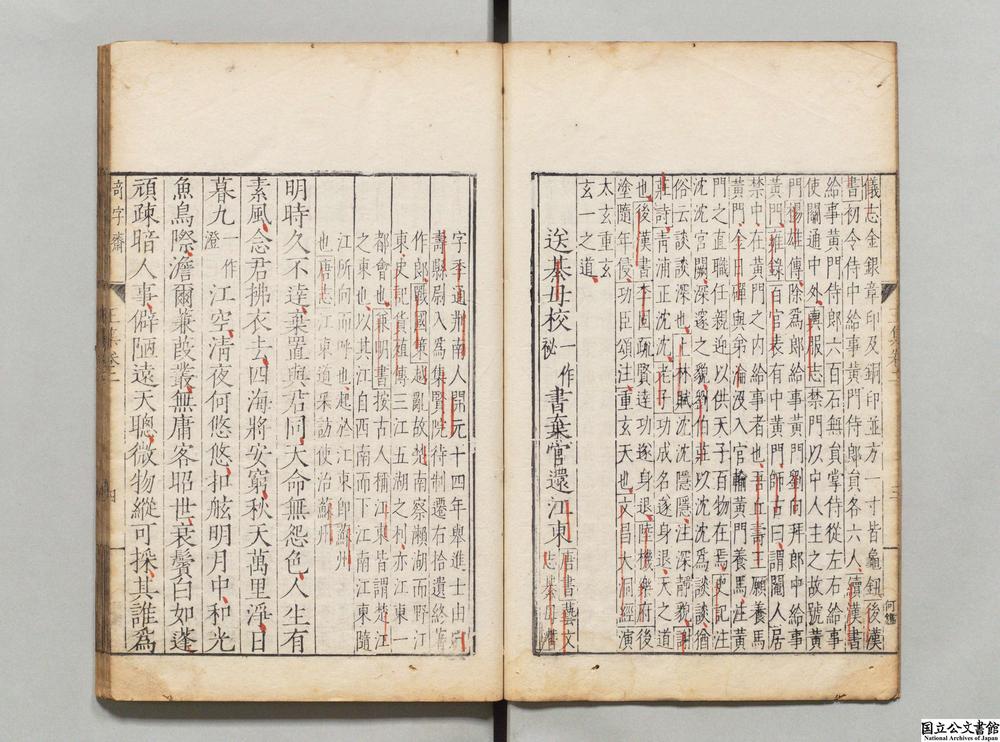 儀志金銀章印及銅印並方一寸皆龜鈕後漢
書初令侍中給事黃門侍郎員各六人續漢書
給事黃門侍郎六百石無員掌侍從左右給事
使關通中外輿服志禁門以中人主之故號黃
門楊雄傳除爲郎給事黃門劉向拜郎中給事
黃門雍錄百官表有中黃門師古曰謂閹人居
禁中在黃門之内給事者也吾丘壽王願養馬
黃門金日磾與弟倫沒入官輸黃門養馬注黃
門之直職任親近以供天子百物在焉史記注
沈沈宮闕深邃之貌鄒伯莊以沈沈爲談談猶
俗云談談深也上林賦沈沈隱隱注深靜貌謝
莊詩青浦正沈沈老子功成名遂身退天之道
也後漢書李固疏賢達功遂身退陸機樂府後
塗隨年侵功臣頌注重玄天也文昌大洞經演
太玄重玄
玄一之道
送綦母校一作祕書棄官還江東唐書藝文志綦母潛
字季通荆南人開元十四年舉進士由宜
壽縣尉入爲集賢院待制遷右拾遺終著
作郎戰國策越亂故楚南察瀨湖而野江
東史記貨殖傳三江五湖之利亦江東一
都會也兼明書按古人稱江東皆謂楚江
之東也以其江自西南而下江南江東隨
江所向而呼也起於江東即蘇州
也唐志江東道采訪使治蘇州
明時久不達棄置與君同大命無怨色人生有
素風念君拂衣去四海將安窮秋天萬里淨日
暮九一作澄江空清夜何悠悠扣舷明月中和光
魚鳥際澹爾蒹葭叢無庸客昭世衰鬢白如蓬
頑疎暗人事僻陋遠天聰微物縱可採其誰爲
奇字齋
四
王集卷二
三
何鑴
国立公文書館
National Archives of Japan